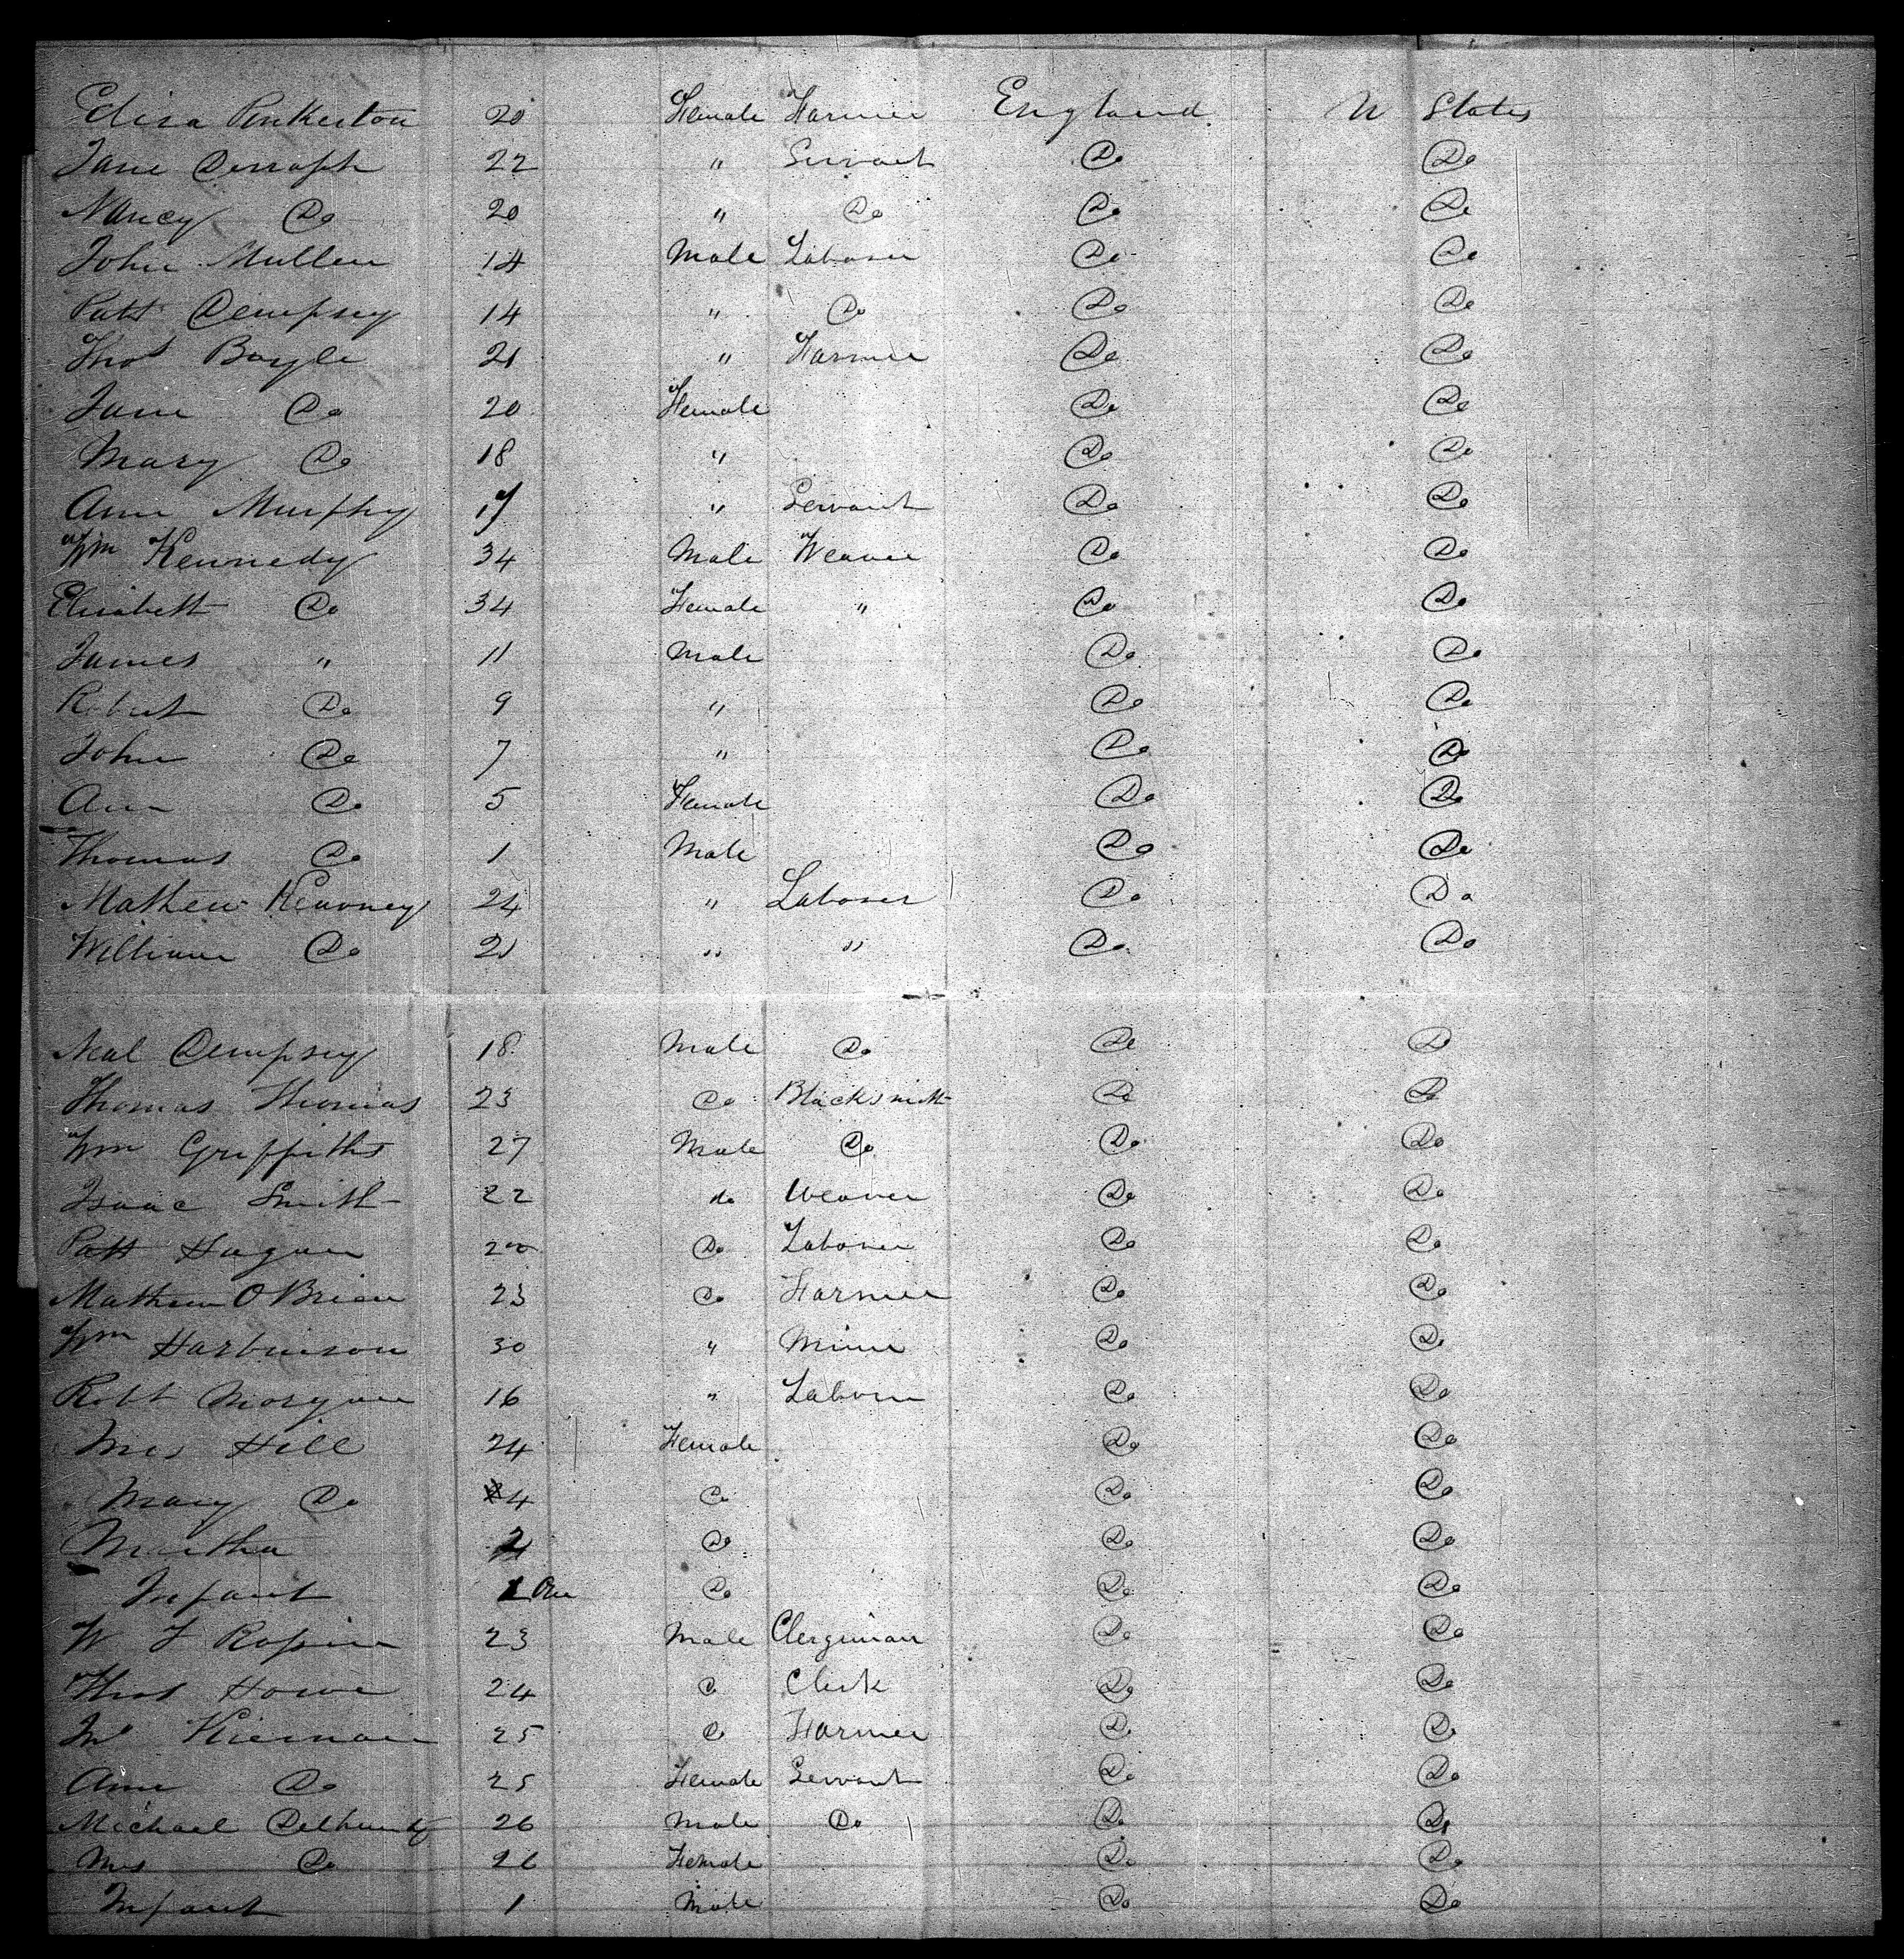 Eliza Pinkerton 20 Female Farmer England U States
Jane Derraph 22 " Servant Do Do
Nancy Do 20 " Do Do Do
John Mullen 14 Male Laborer Do Do
Patt Dempsey 14 " Do Do Do
Thos Boyle 21 " Farmer Do Do
Jane Do 20 Female Do Do
Mary Do 18 " Do Do
Ann Murphy 17 " Servant Do Do
Wm Kennedy 34 Male Weaver Do Do
Elizabeth Do 34 Female " Do Do
James " 11 Male Do Do
Robert Do 9 " Do Do
John Do 7 " Do Do
Ann Do 5 Female Do Do
Thomas Do 1 Male Do Do
Mathew Kearney 24 " Laborer Do Do
William Do 21 " " Do Do
Neal Dempsey 18 Male Do Do Do
Thomas Thomas 23 Do Blacksmith Do Do
Wm Griffiths 27 Male Do Do Do
Isaac Smith 22 do Weaver Do Do
Patt Hagan Do Laborer Do Do
Mathew O Brien 23 Do Farmer Do Do
Wm Harbinson 30 " Miner Do Do
Robt Morgan 16 " Laborer Do Do
Mrs Hill 24 Female Do Do
Mary Do 4 Do Do Do
Martha 2 Do Do Do
Infant 1 One Do Do Do
W 23 Male Clergiman Do Do
Thos Howe 24 Do Clerk Do Do
Kiernan 25 Do Farmer Do Do
Ann Do 25 Female Servant Do Do
Michael Delhunty 26 Male Do Do Do
Mrs Do 26 Female Do Do
Infant 1 Male Do Do